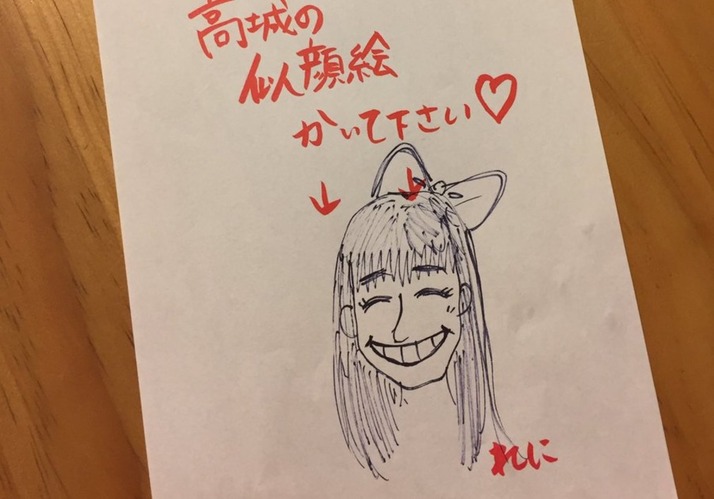 高城の
似顔絵
かいて下さい♡
↓ ↓
れに